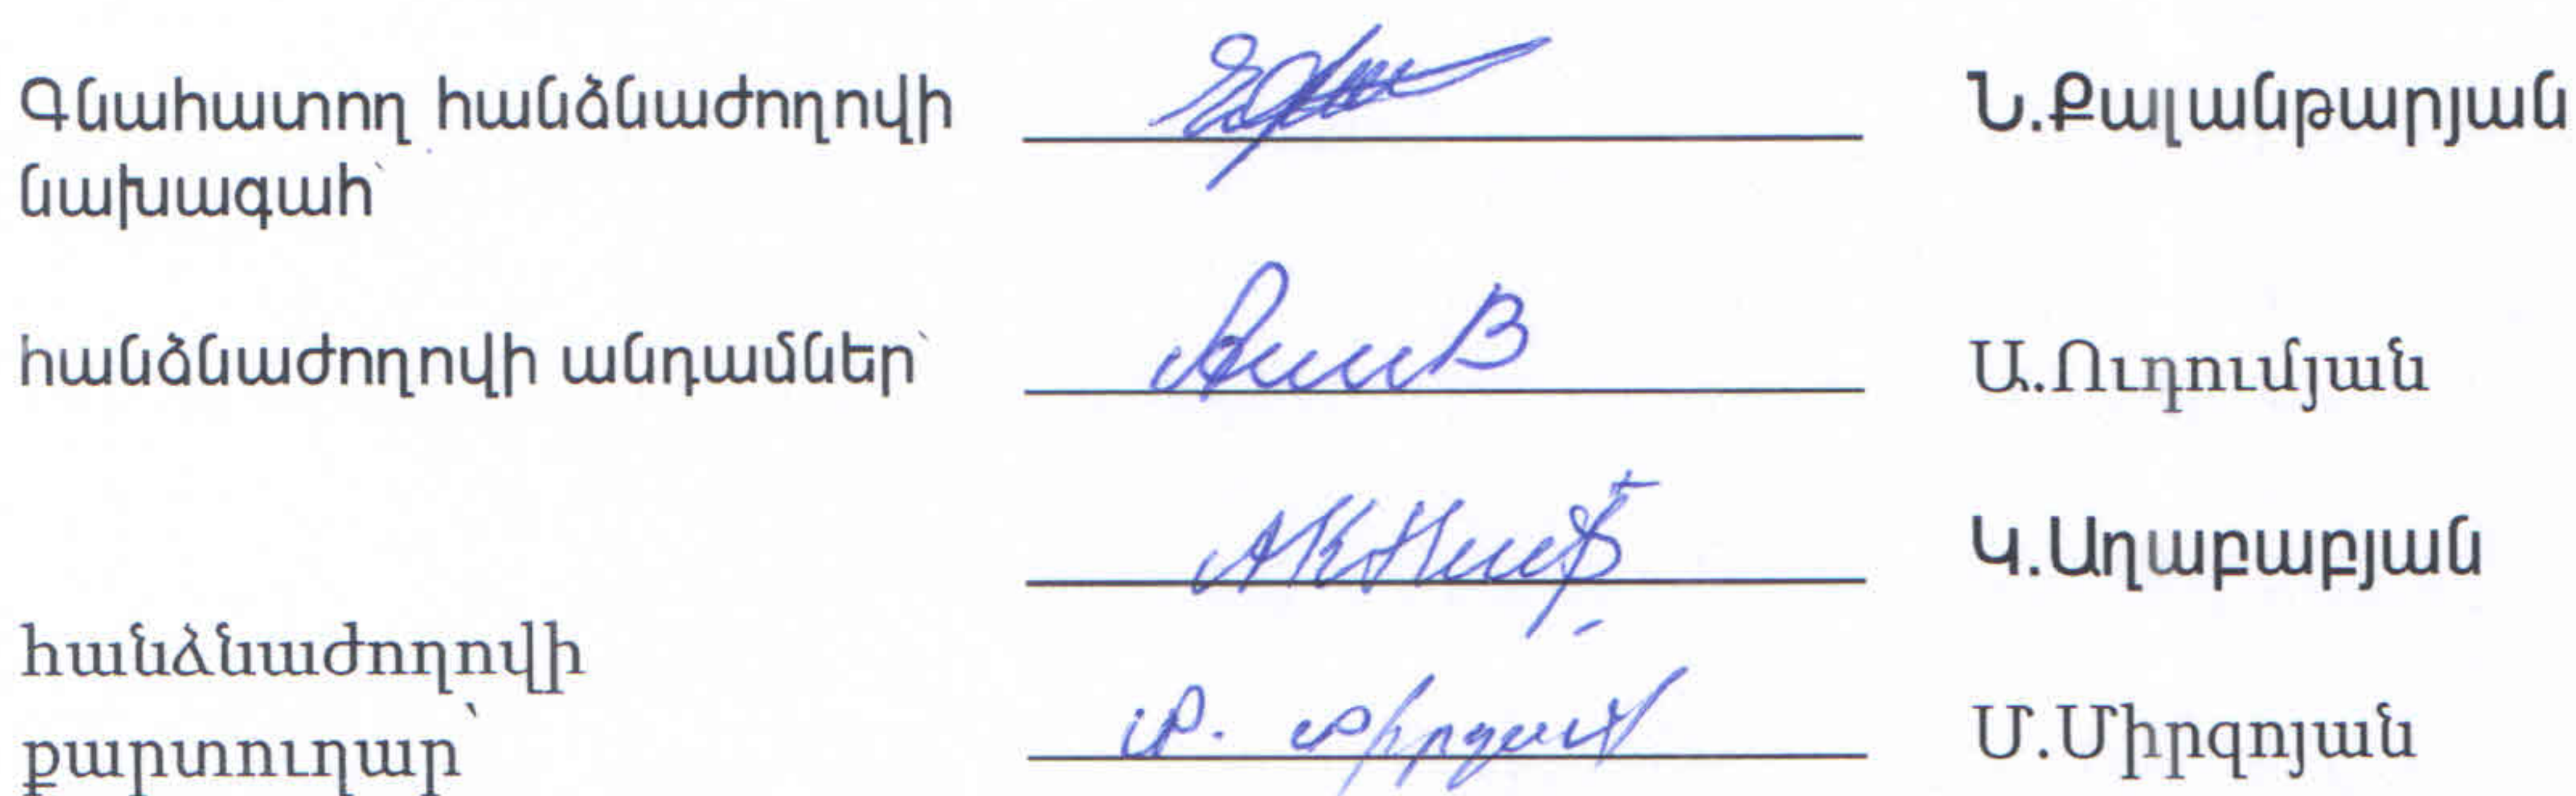 Գնահատող հանձնաժողովի Ն.Քալանթարյան
նախագահ՝
հանձնաժողովի անդամներ՝ Ա.Ուդումյան
Կ.Աղաբաբյան
հանձնաժողովի
քարտուղար՝ Մ.Միրզոյան